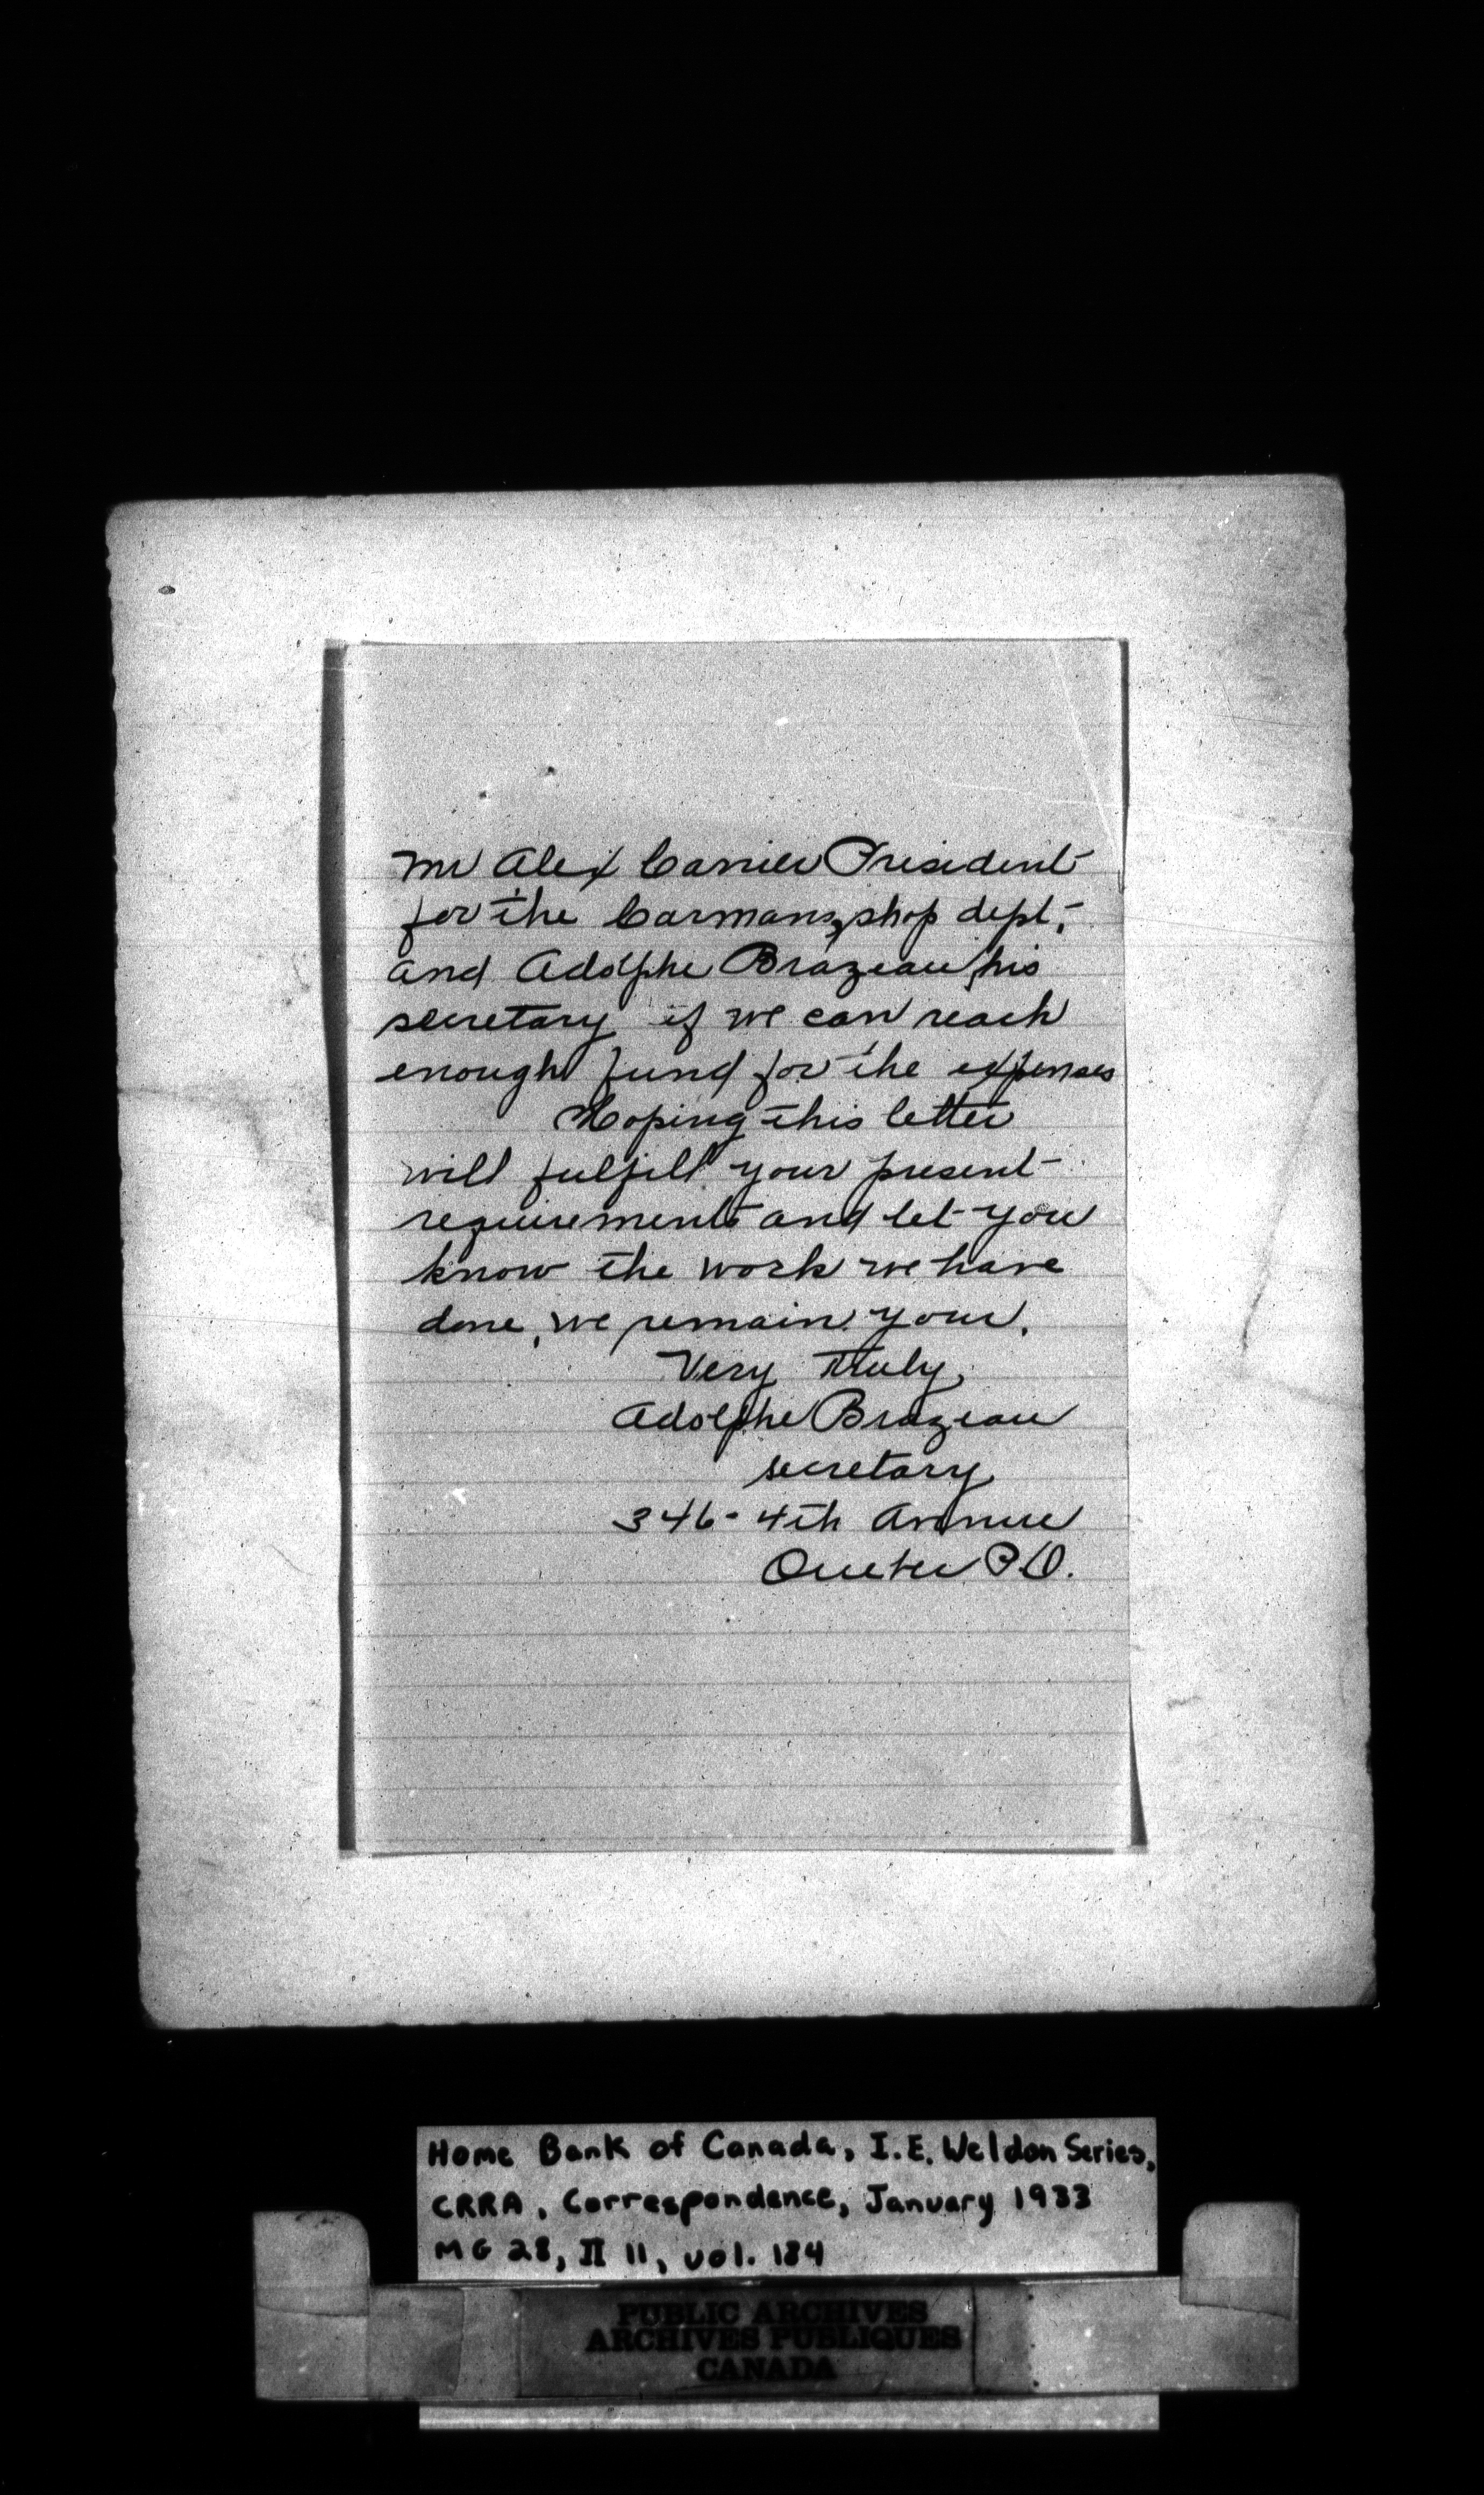 Mr Alex Carrier President
for the Carmans, shop dept,
and Adolphe Brazeau his
secretary if we can reach
enough fund for the expenses
Hoping this letter
will fulfill your present
requirements and let you
know the work we have
done, we remain your,
Very Truly,
Adolphe Brazeau
secretary
346-4th Avenue
Quebec P.Q.
Home Bank of Canada, I.E. Weldon Series,
CRRA, Correspondence, January 1933
MG 28, II 11, vol. 184
PUBLIC ARCHIVES
ARCHIVES PUBLIQUES
CANADA